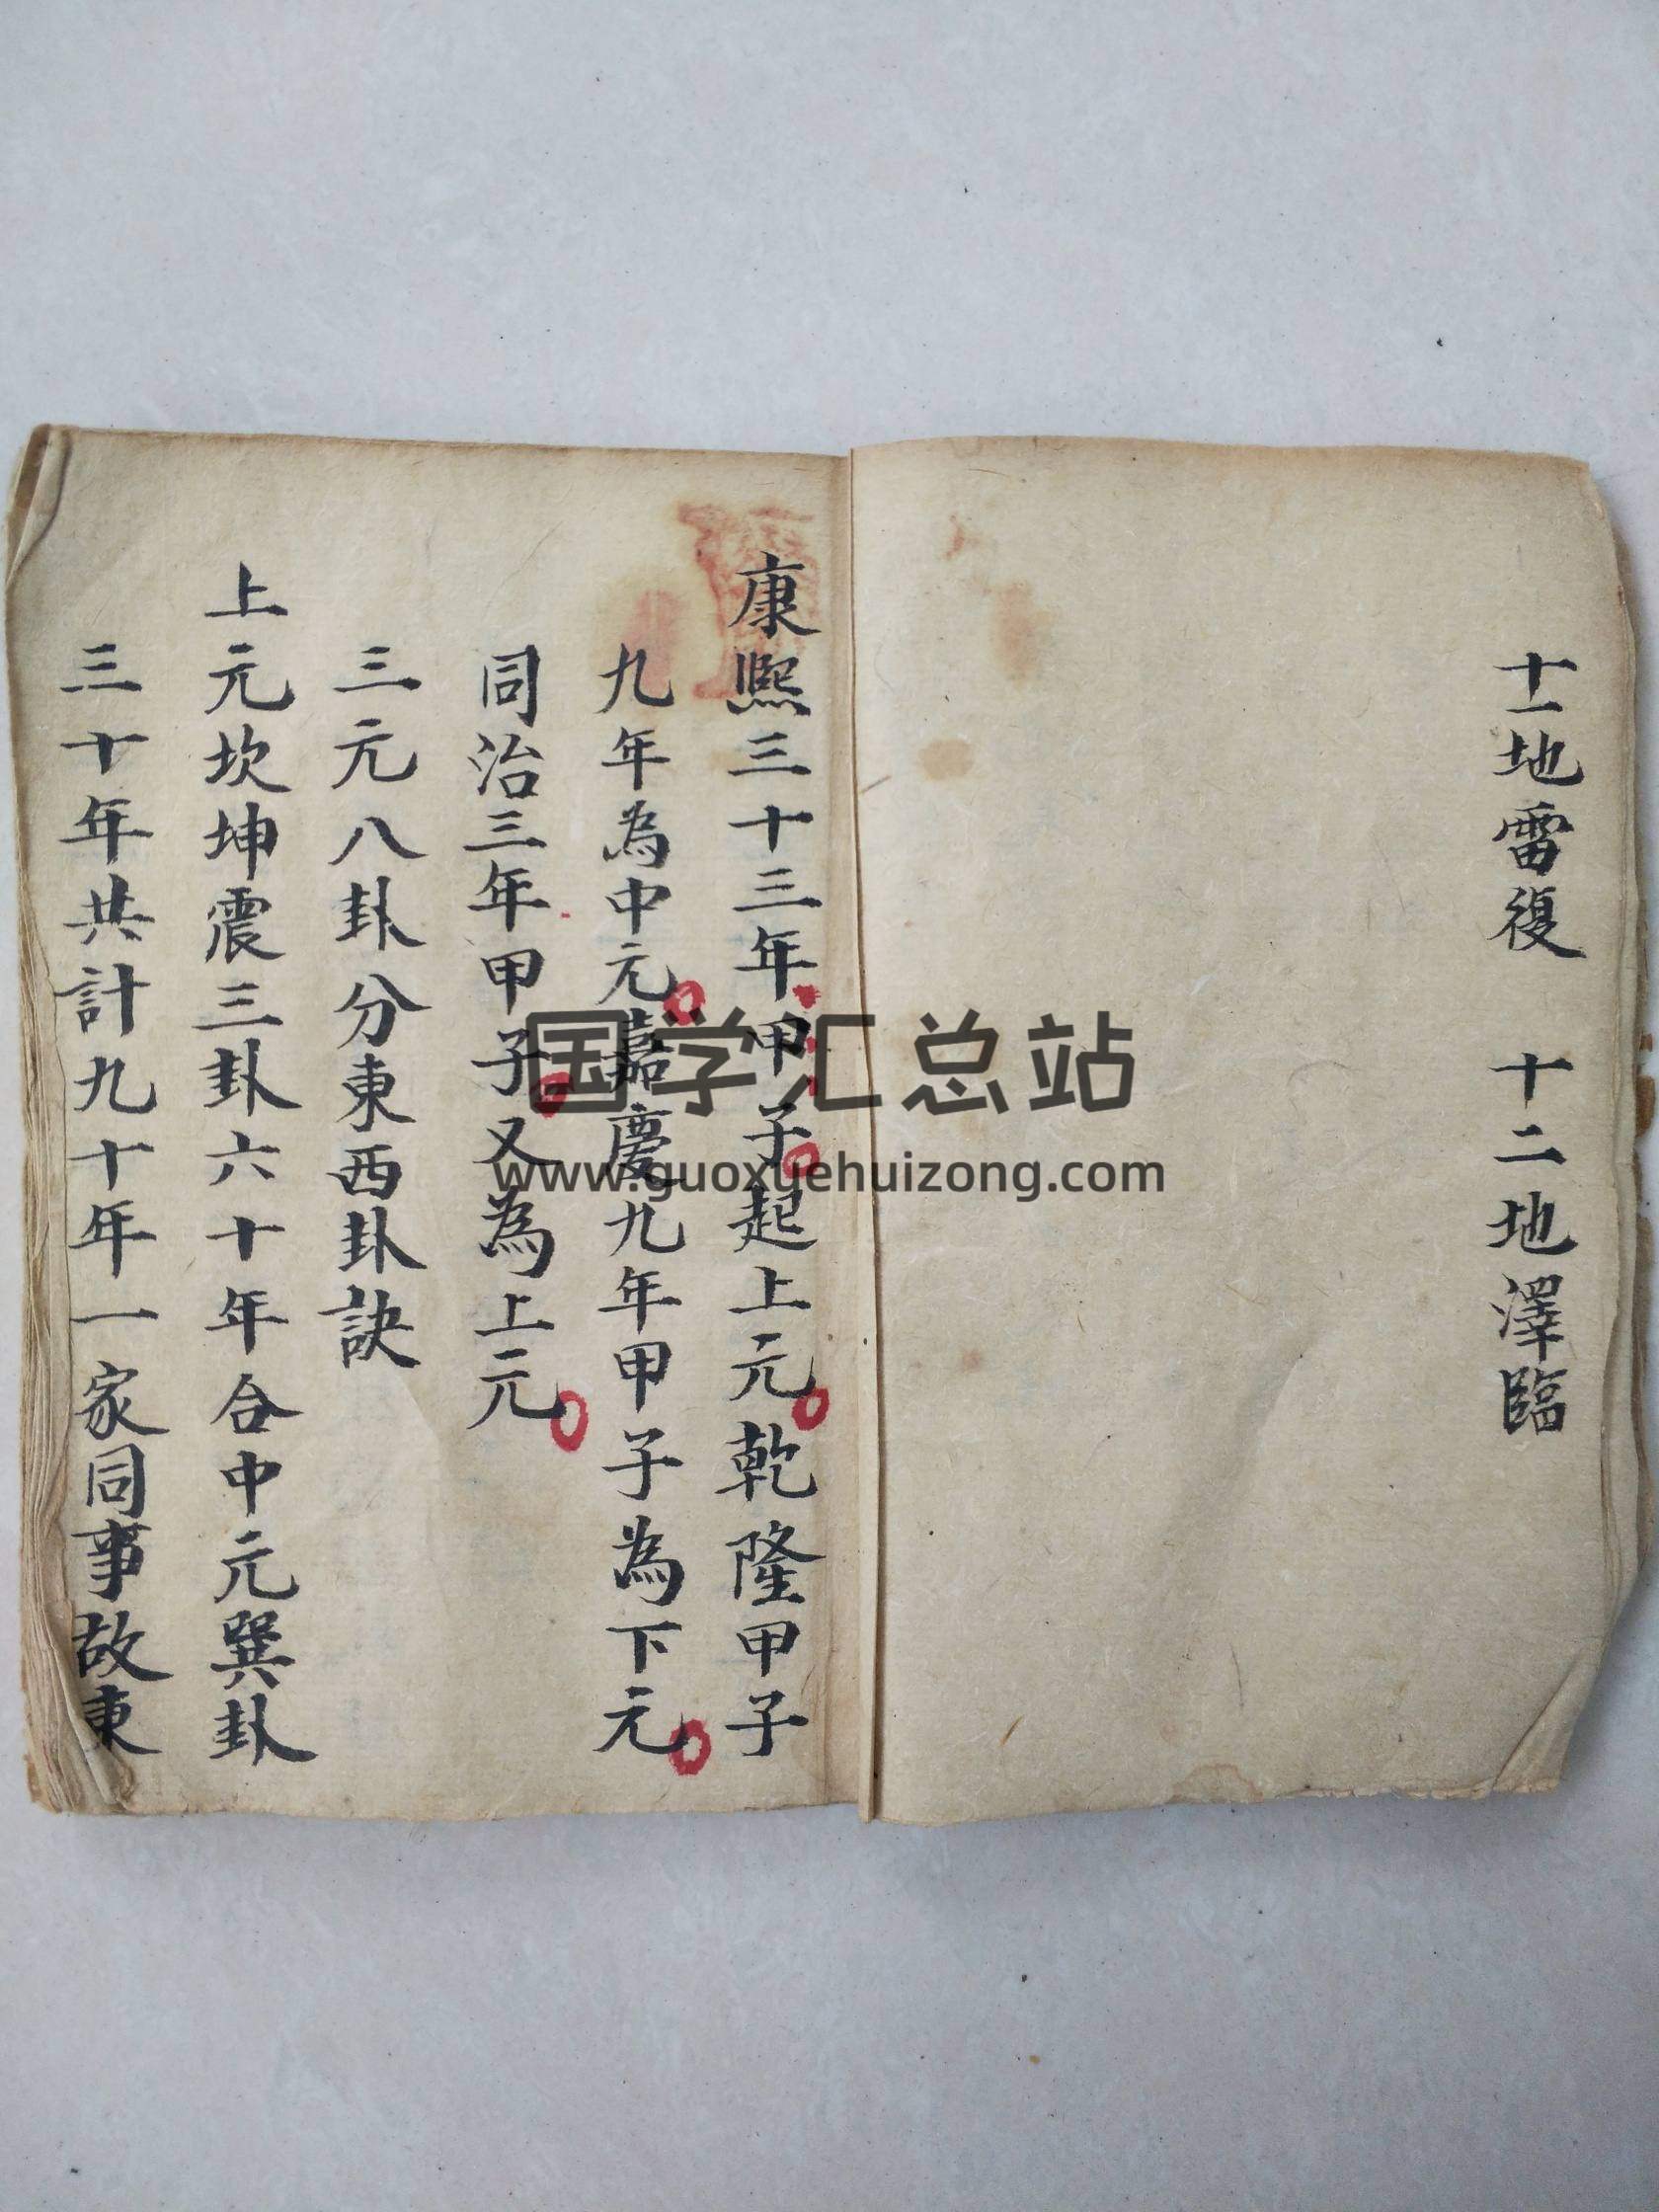 十一地雷復　十二地澤臨
康熙三十三年甲子起上元乾隆甲子
九年為中元嘉慶九年甲子為下元
同治三年甲子又為上元
三元八卦分東西卦訣
上元坎坤震三卦六十年合中元巽卦
三十年共計九十年一家同事故東
国学汇总站
www.guoxuehuizong.com